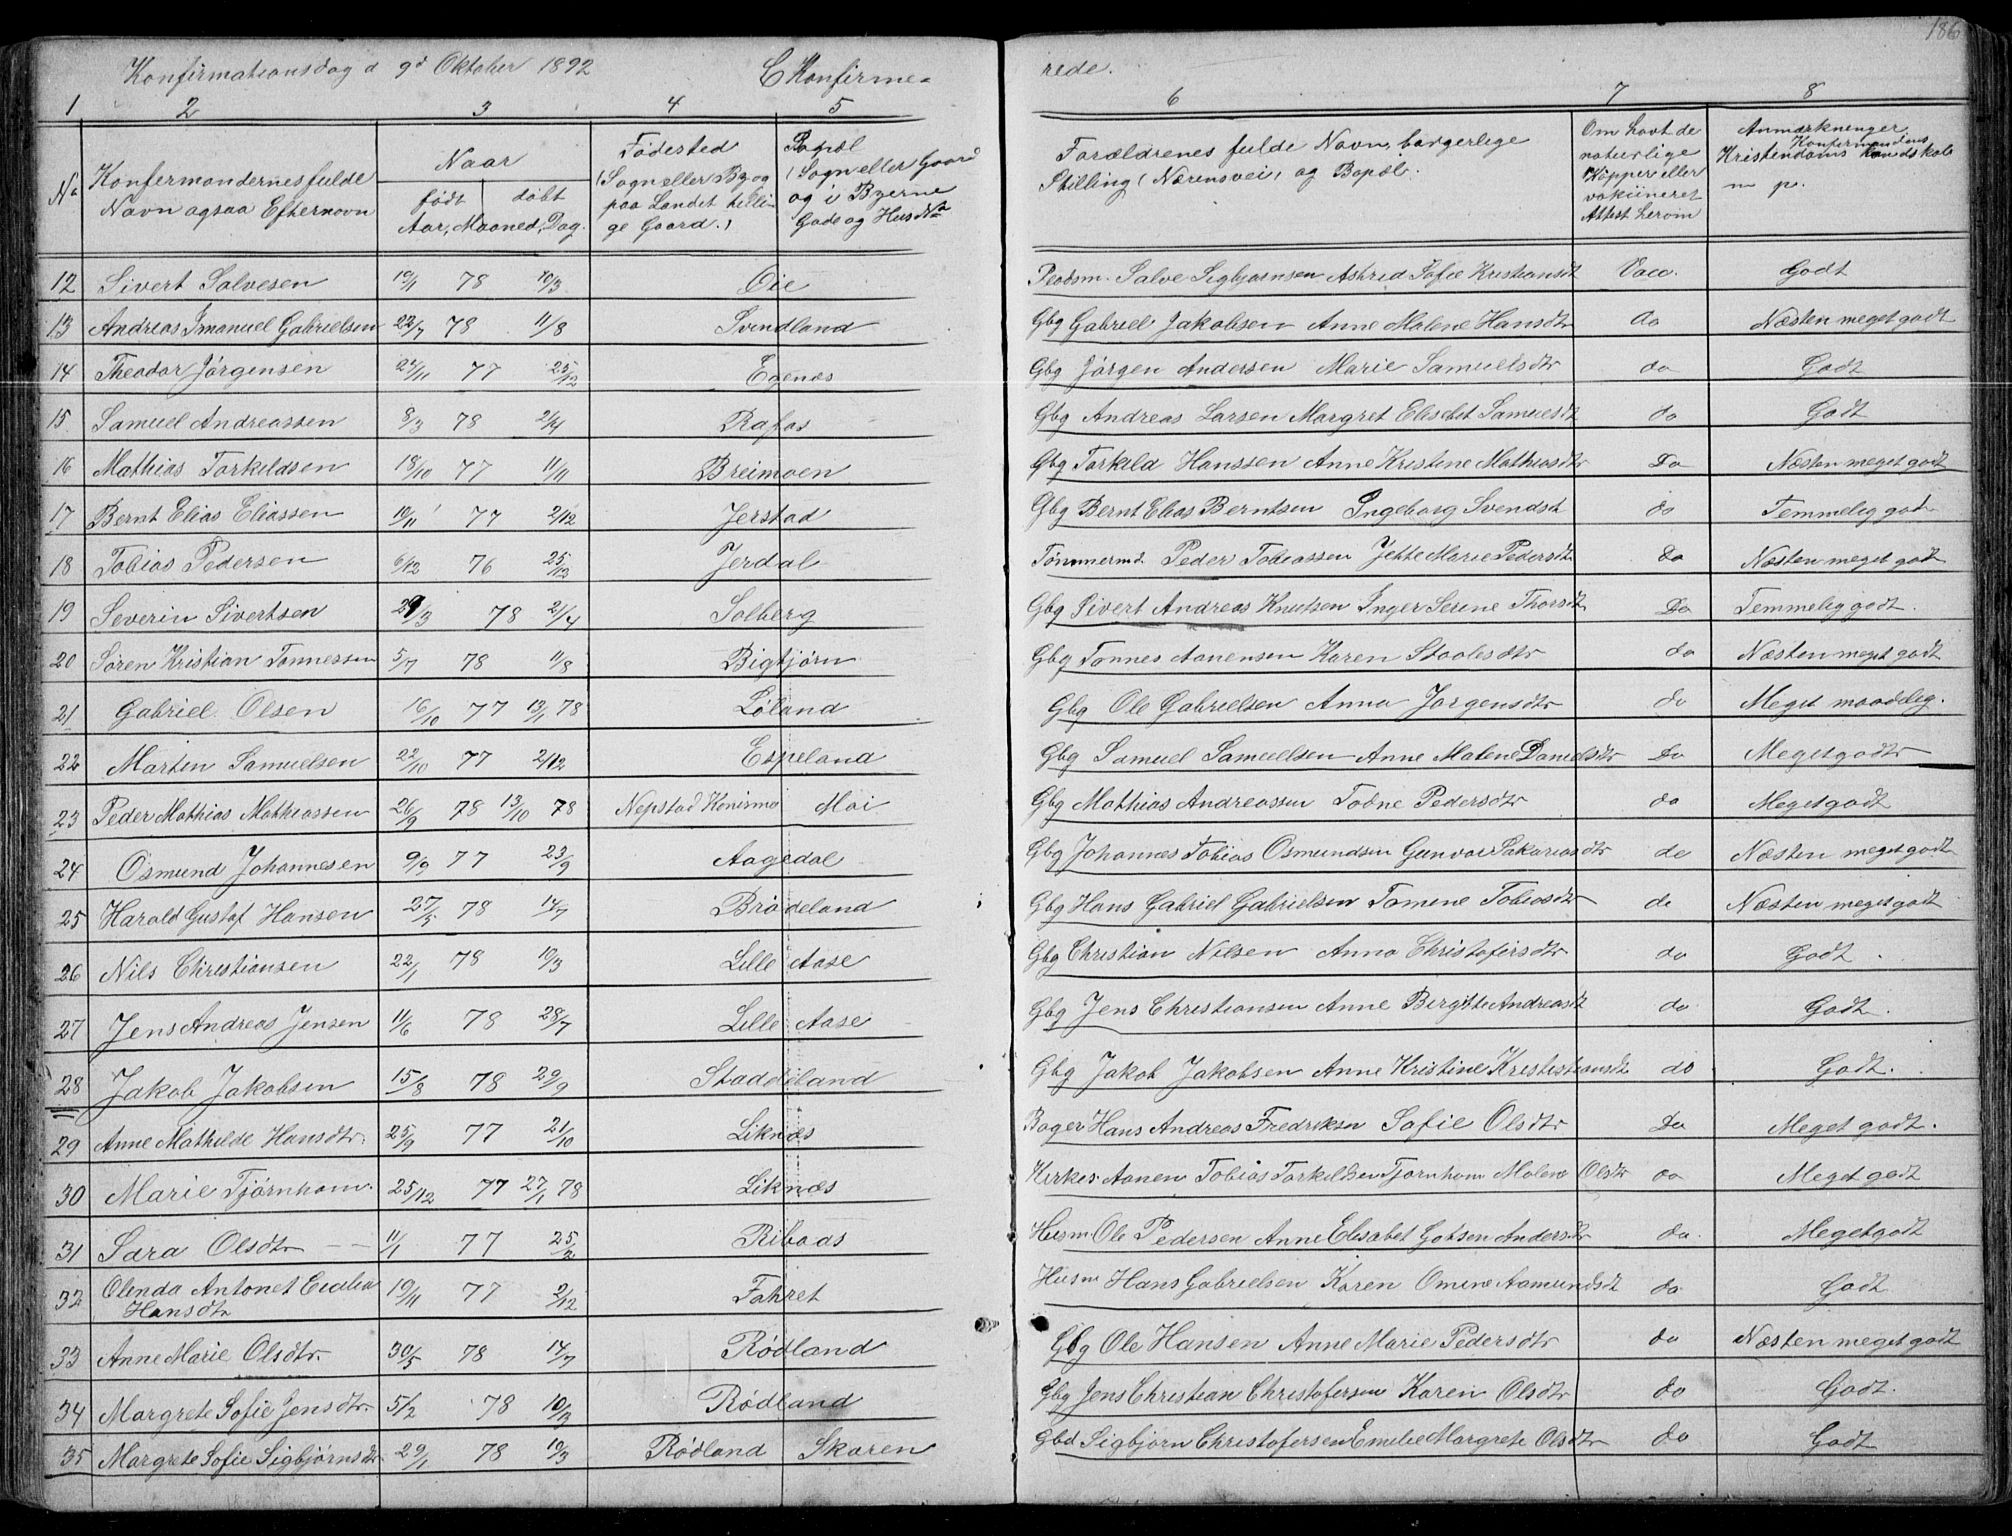 186
Konfirmationsdag d 9d Oktober 1892 C Konfirme= rede.
1 2 3 4 5 6 7 8
No Konfermandernes fulde Navn ogsaa Efternavn
Naar født døbt Aar, Maaned, Dag.
Fødested (Sogn eller By og paa Landet tillige Gaard.)
Bopæl (Sogn eller Gaard og i Byerne Gade og Hus No
Forældrenes fulde Navn, borgerlige Stilling (Næringsvei) og Bopæl.
Om havt de naturlige Kopper eller vakcineret Attest herom
Anmærkninger Konfirmandens Kristendoms Kundskab m. p.
12 Sivert Salvesen 10/1 78 10/3 Øie Salve Sigbjørnsen Astrid Sofie Kristiansdt Vacc. Godt
13 Andreas Imanuel Gabrielsen 22/7 78 11/8 Svindland Gbg Gabriel Jakobsen Anne Malene Hansdtr do Næsten meget godt
14 Theodor Jørgensen 24/11 77 25/12 Egenæs Gbg Jørgen Andersen Marie Samuelsdtr do Godt
15 Samuel Andreassen 8/3 78 2/4 Rafos Gbg Andreas Larsen Margret Elisabet Samuelsdt do Godt
16 Mathias Torkildsen 18/10 77 11/11 Breimoen Gbg Torkild Hanssen Anne Kristine Mathiasdtr Do Næsten meget godt
17 Bernt Elias Eliassen 10/11 77 2/12 Jerstad Gbg Bernt Elias Berntsen Ingeborg Svendsdt do Temmelig godt
18 Tobias Pedersen 6/12 76 25/12 Jerdal Tømmermd Peder Tobiassen Jette Marie Pedersdt Do Næsten meget godt
19 Severin Sivertsen 29/3 78 2/4 Solberg Gbg Sivert Andreas Knutsen Inger Serine Thorsdtr Do Temmelig godt.
20 Søren Kristian Tønnessen 5/7 78 11/8 Bigtjørn Gbg Tønnes Aanensen Karen Staalesdtr do Næsten meget godt
21 Gabriel Olsen 16/10 77 13/1 78 Løland Gbg Ole Gabrielsen Anna Jørgensdtr do Meget maadelig.
22 Martin Samuelsen 22/10 77 2/12 Espeland Gbg Samuel Samuelsen Anne Malene Danielsdtr Do Meget godt
23 Peder Mathias Mathiassen 26/9 78 13/10 78 Nepstad Konismo Moi Gbg Mathias Andreassen Todne Pedersdtr do Meget godt
24 Osmund Johannesen 9/9 77 23/9 Aagedal Gbg Johannes Tobias Osmundsen Gunvor Sakariasdtr do Næsten meget godt
25 Harald Gustaf Hansen 27/5 78 14/7 Brødeland Gbg Hans Gabriel Gabrielsen Tomine Tobiasdtr do Næsten meget godt
26 Nils Christiansen 22/1 78 10/3 Lille Aase Gbg Christian Nilsen Anna Christofersdtr do Godt.
27 Jens Andreas Jensen 11/6 78 28/7 Lille Aase Gbg Jens Christiansen Anne Bergitte Andreasdt do Godt.
28 Jakob Jakobsen 15/8 78 29/9 Staddeland Gbg Jakob Jakobsen Anne Kristine Krististiansdt do Godt.
29 Anne Mathilde Hansdtr. 25/9 77 21/10 Liknæs Bager Hans Andreas Fredriksen Sofie Olsdtr Do Meget godt.
30 Marie Tjørnhom. 25/12 77 27/1 78 Liknæs Kirkes. Aanen Tobias Torkildsen Tjørnhom Malene Olsdtr do Meget godt
31 Sara Olsdtr 11/1 77 25/2 Ribaas Husm Ole Pedersen Anne Elisabet Andersdtr do. Meget godt
32 Olinda Antonet Hansdtr 19/11 77 2/12 Fahret Husm Hans Gabrielsen Karen Omine Aamundsdt do. Godt.
33 Anne Marie Olsdtr. 30/5 78 14/7 Rødland Gbg Ole Hansen Anne Marie Pedersdtr do Næsten meget godt
34 Margrete Sofie Jensdtr. 5/2 78 10/3 Rødland Gbg Jens Christian Christofersen Karen Olsdtr do Godt.
35 Margrete Sofie Sigbjørnsdtr 29/1 78 10/3 Rødland Skaren Gbd Sigbjørn Christofersen Emilie Margrete Olsdtr do Godt